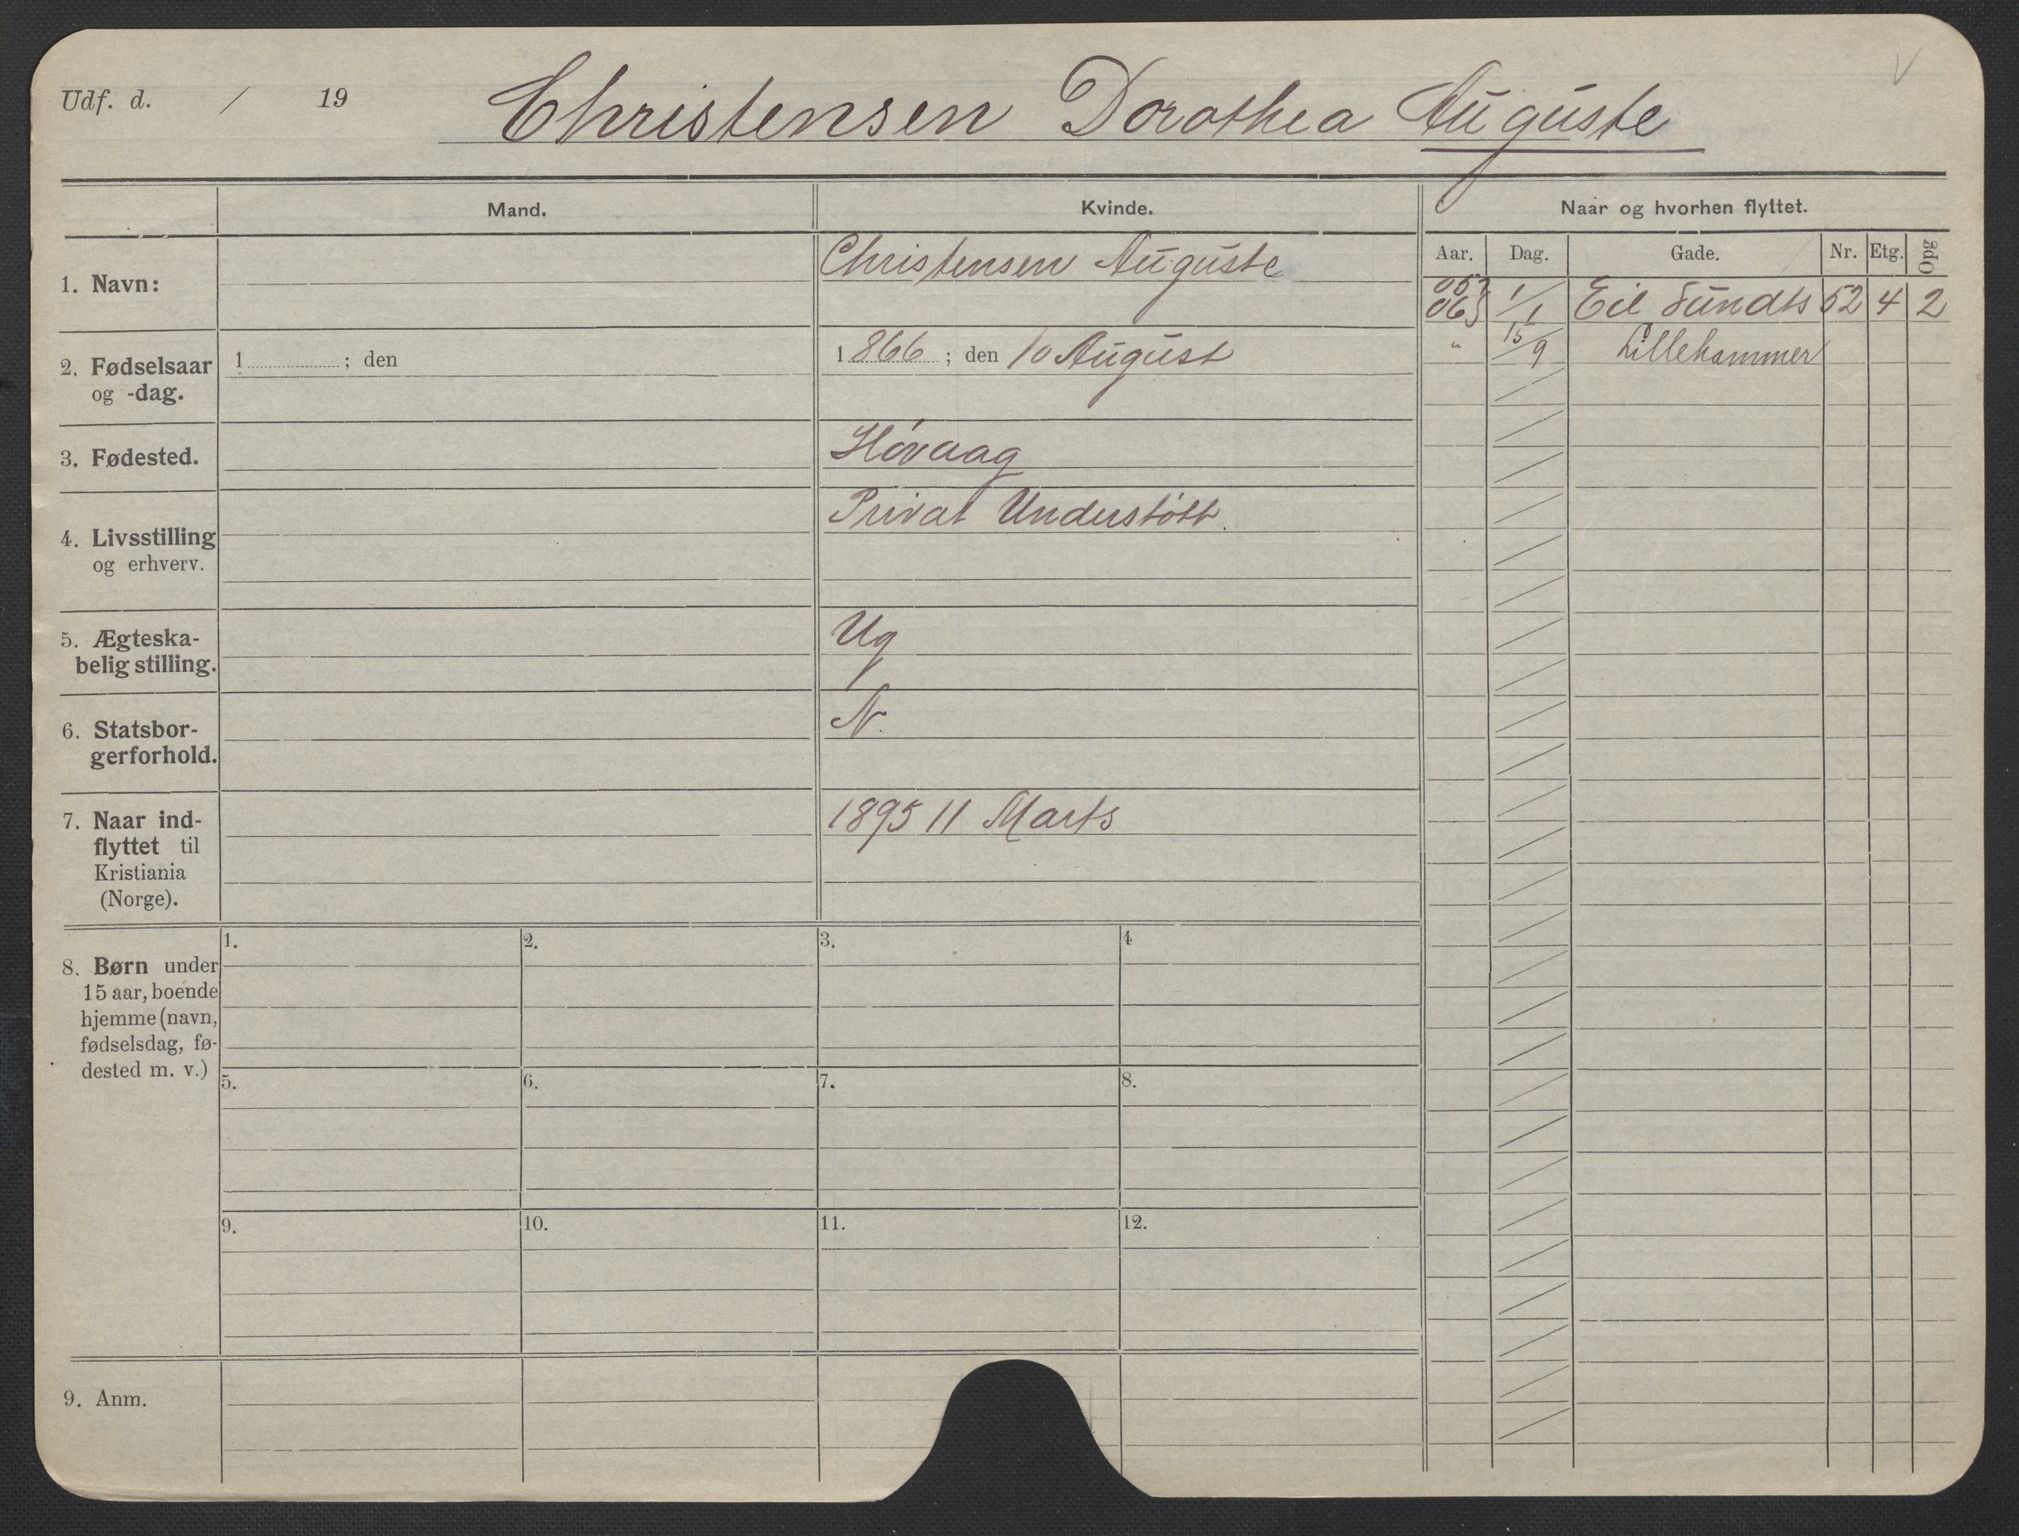 Udf. d. / 19 Christensen Dorothea Auguste
Mand. Kvinde. Naar og hvorhen flyttet.
Aar. Dag. Gade. Nr. Etg. Opg
1. Navn: Christensen Auguste
05 06 1/1 Eil Sundts 52 4 2
" 15/9 Lillehammer
2. Fødselsaar og -dag. 1 ; den 1866 ; den 10 August
3. Fødested. Høvaag
4. Livsstilling og erhverv. Privat Understøtt.
5. Ægteska-
belig stilling. Ug
6. Statsbor-
gerforhold. N.
7. Naar ind-
flyttet til
Kristiania
(Norge). 1895 11 Marts
8. Børn under
15 aar, boende
hjemme (navn,
fødselsdag, fø-
dested m. v.)
1. 2. 3. 4
5. 6. 7. 8.
9. 10. 11. 12.
9. Anm.